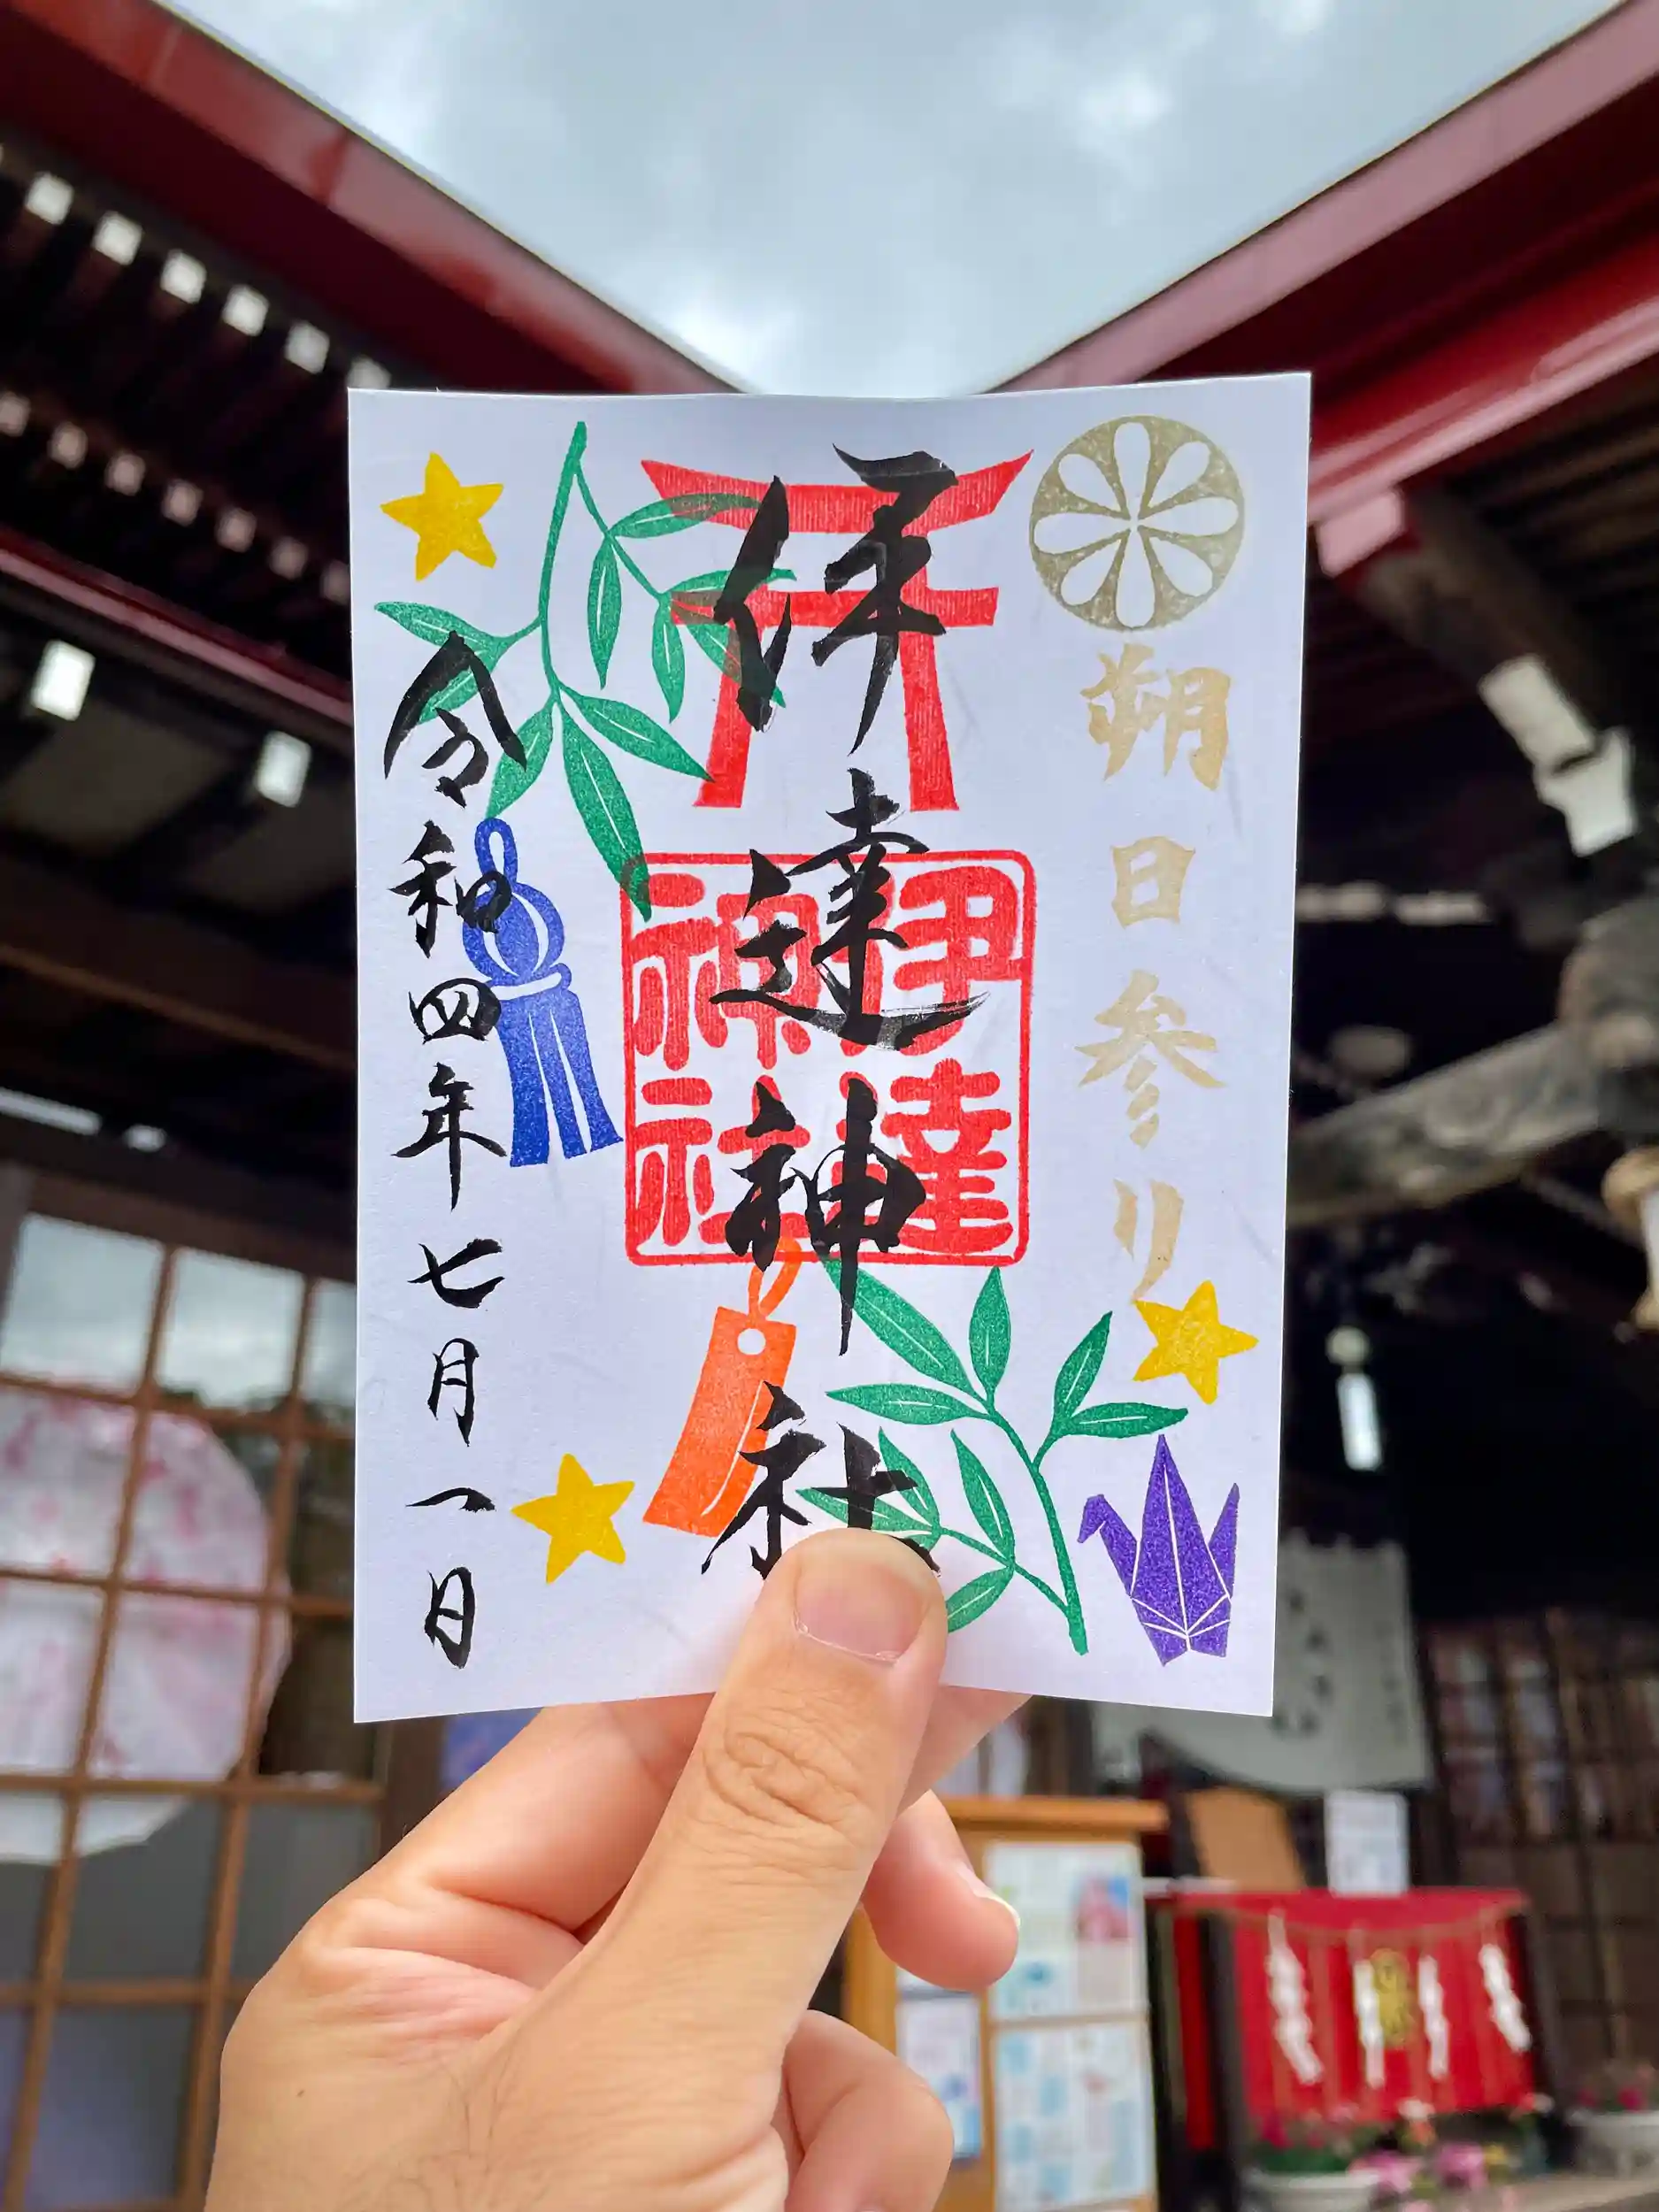 朔日参り
伊達神社
伊達
神社
令和四年七月一日